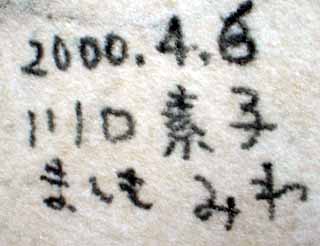 2000.4.6
川口素子
みわ